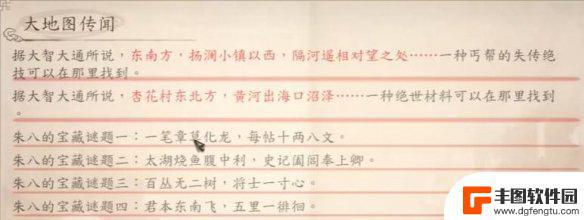 大地图传闻
据大智大通所说，东南方，扬澜小镇以西，隔河遥相对望之处……一种丐帮的失传绝
技可以在那里找到。
据大智大通所说，杏花村东北方，黄河出海口沼泽……一种绝世材料可以在那里找到
。
朱八的宝藏谜题一：一笔章草化龙，每帖十两八文。
朱八的宝藏谜题二：太湖烧鱼腹中利，史记阖闾奉上卿。
朱八的宝藏谜题三：百丛无二树，将士一寸心。
朱八的宝藏谜题四：君本东南飞，五里一徘徊。
丰图软件园
www.dgfengtu.com